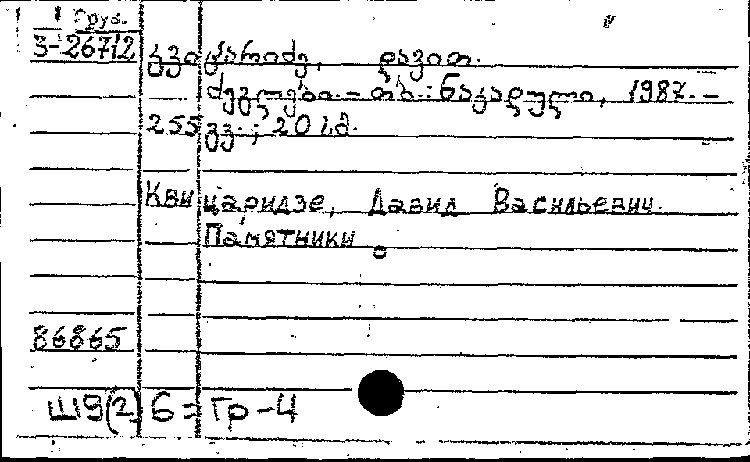 1 Груз.
3-26712
კვიცარიძე, დავით.
ძეგლები. – თბ.: ნაკადული, 1987. –
255 გვ.; 20 სმ.
Квицаридзе, Давид Васильевич.
Памятники
86865
Ш9(2)6=Гр-4